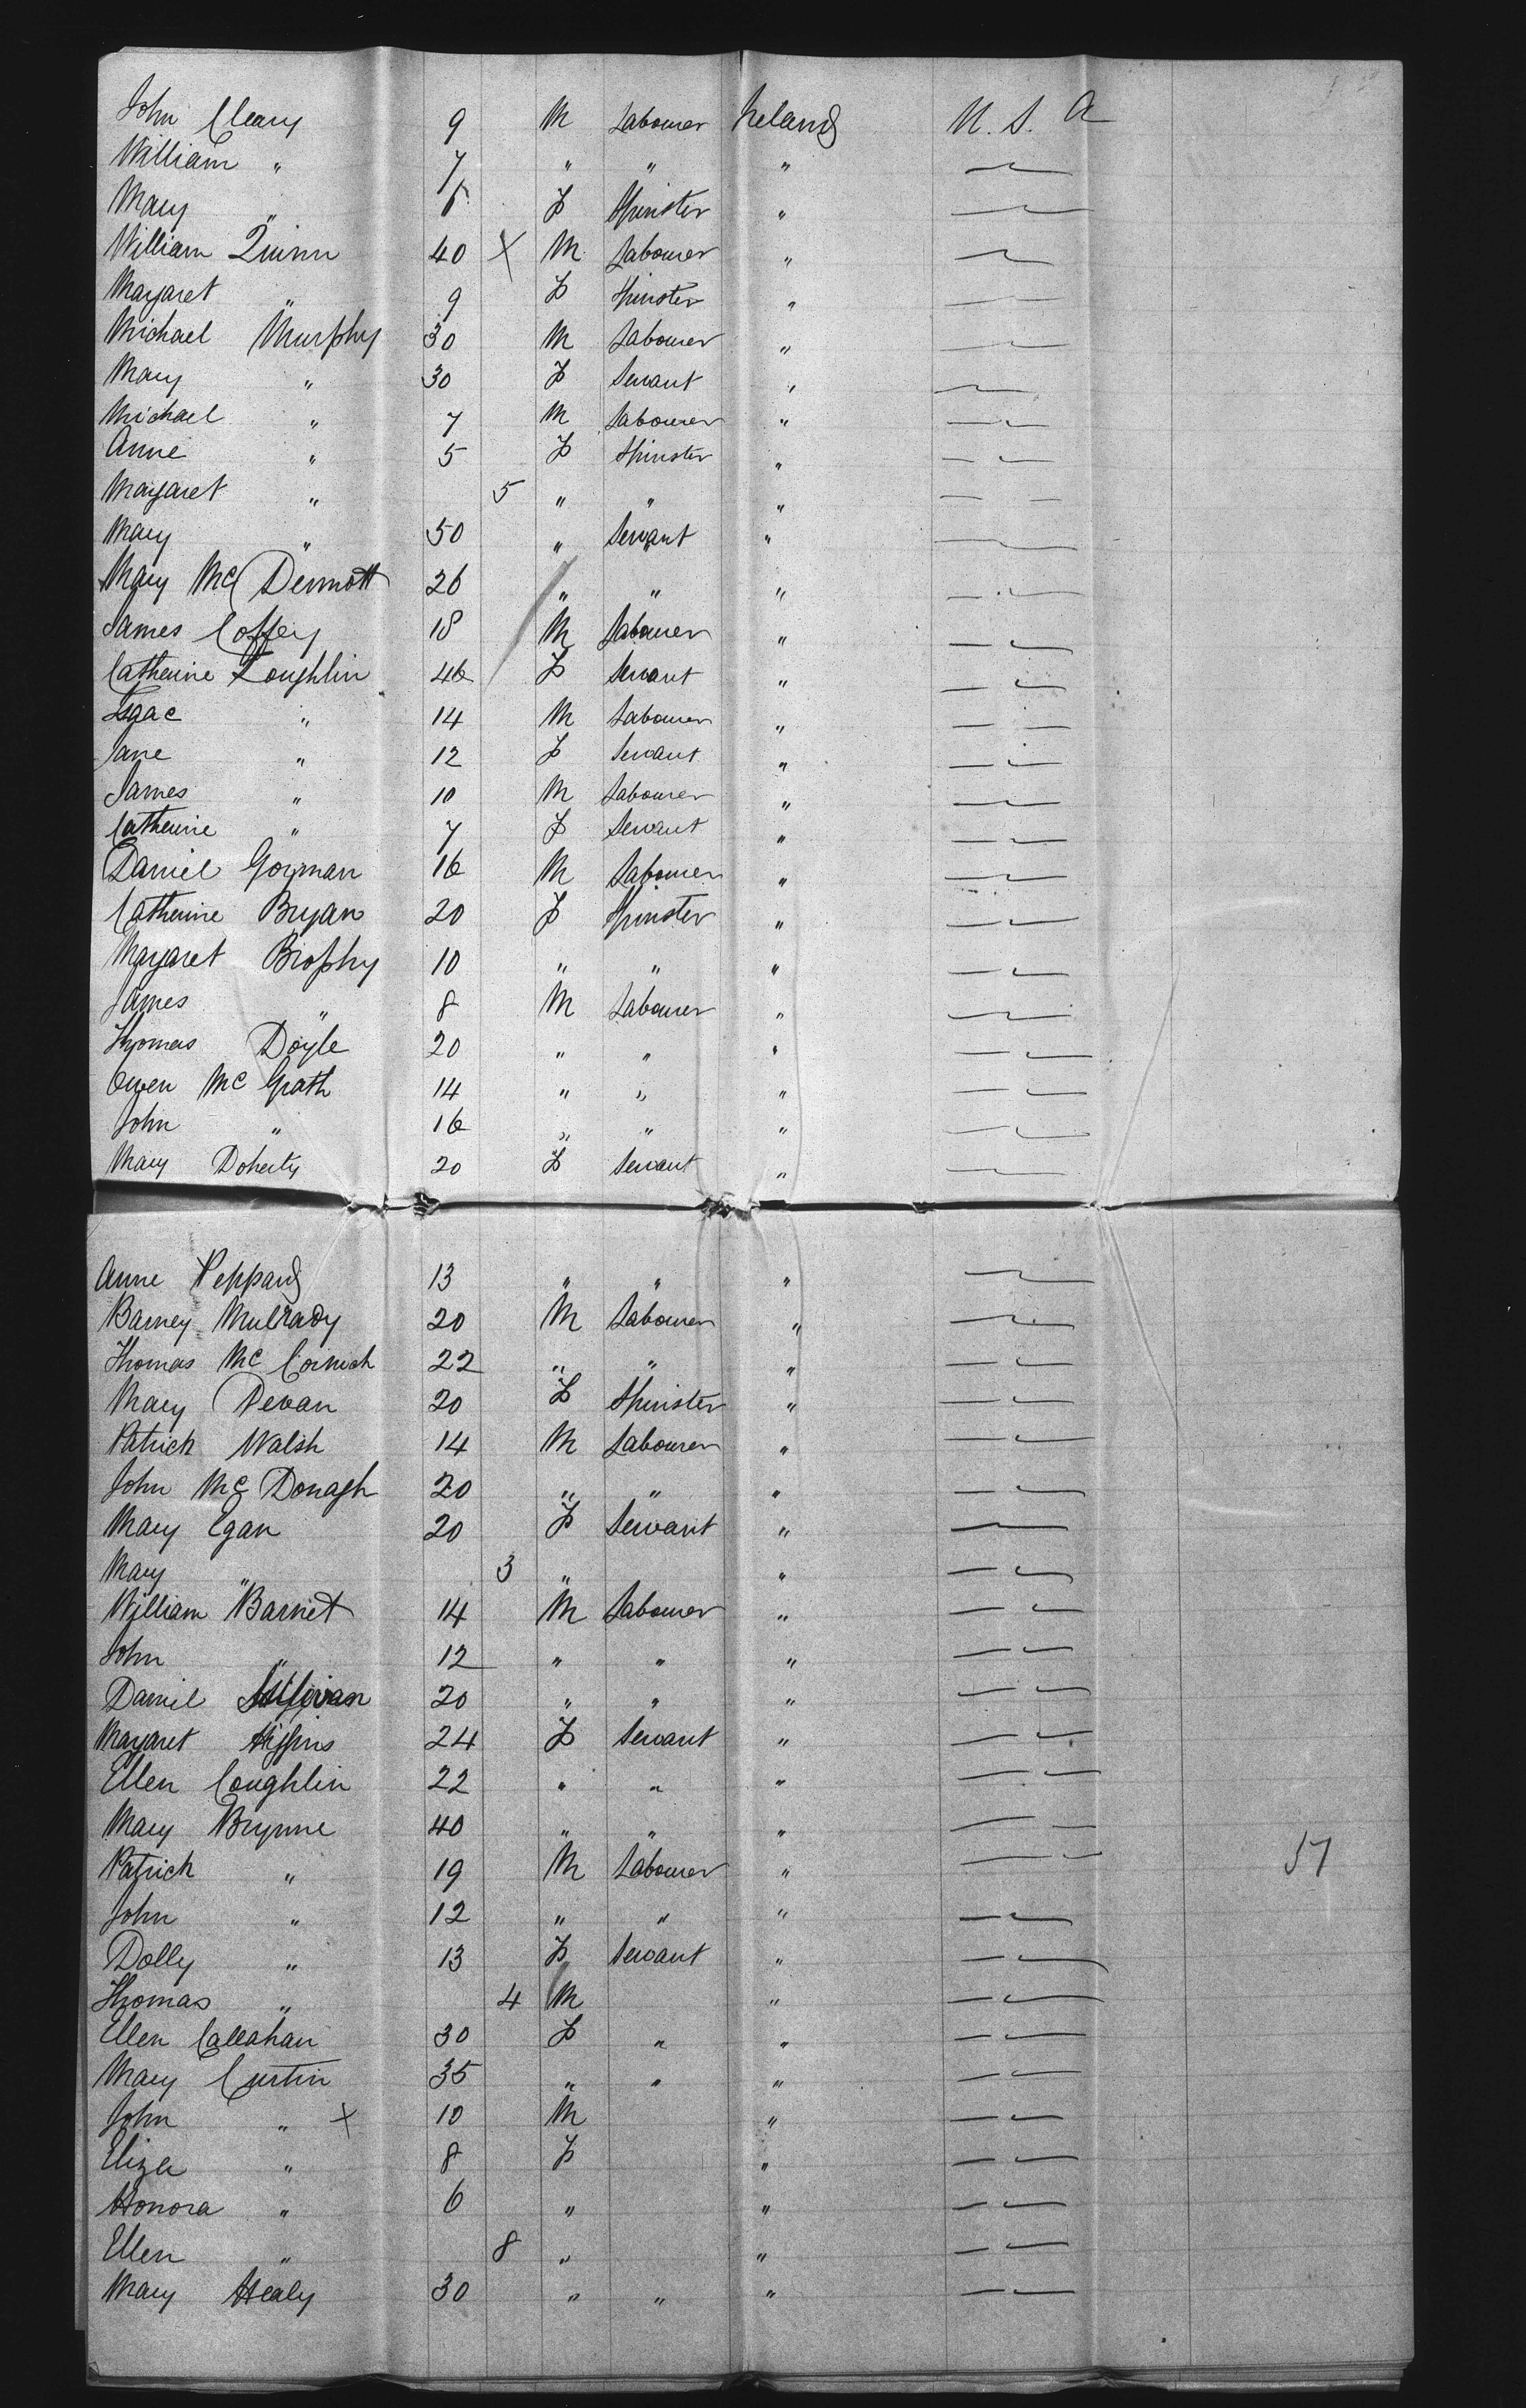 John Cleary 9 M Labourer Ireland U. S. A
William " 7 " " "
Mary " 5 F Spinster "
William Quinn 40 X M Labourer "
Margaret " 9 F Spinster "
Michael Murphy 30 M Labourer "
Mary " 30 F Servant "
Michael " 7 M Labourer "
Anne " 5 F Spinster "
Margaret " 5 " " "
Mary " 50 " Servant "
Mary McDermott 26 " " "
James Coffey 18 M Labourer "
Catherine Loughlin 46 F Servant "
Isaac " 14 M Labourer "
Jane " 12 F Servant "
James " 10 M Labourer "
Catherine " 7 F Servant "
Daniel Gorman 16 M Labourer "
Catherine Bryan 20 F Spinster "
Margaret Brophy 10 " " "
James " 8 M Labourer "
Thomas Doyle 20 " " "
Owen Mc Grath 14 " " "
John " 16 " " "
Mary Doherty 20 F Servant "
Anne Peppard 13 " " "
Barney Mulrady 20 M Labourer "
Thomas Mc 22 " " "
Mary Devan 20 F Spinster "
Patrick Walsh 14 M Labourer "
John Mc Donagh 20 " " "
Mary Egan 20 F Servant "
Mary " 3 " "
William Barnet 14 M Labourer "
John " 12 " " "
Daniel Sullivan 20 " " "
Margaret Higgins 24 F Servant "
Ellen Coughlin 22 " " "
Mary Brynne 40 " " "
Patrick " 19 M Labourer " 51
John " 12 " " "
Dolly " 13 F Servant "
Thomas " 4 M "
Ellen Callahan 30 F " "
Mary Curtin 35 " " "
John " X 10 M "
Eliza " 8 F "
Honora " 6 " "
Ellen " 8 " "
Mary Healy 30 " " "